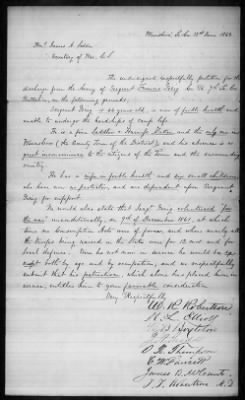 Winnsboro, So. Ca. 13th June 1863.
Hon. James A. Seddon
Secretary of War, C.S.
The undersigned respectfully petition for the
discharge from the Army of Sergeant Co. 7th So. Ca.
Battalion, on the following grounds;
Sergeant is years old, is now of feeble health and
unable to undergo the hardships of camp life.
He is a fine Saddler & Harness and the only one in
Winnsboro (the County Town of the District) and his absence is a
great inconvenience to the citizens of the Town and the surrounding
country.
He has a wife in feeble health and small children
who have no protection, and are dependent upon Sergeant
for support.
He would also state that Sergt. volunteered "for
the war" unconditionally, on 9th of December 1861, at which
time no Conscription Acts were of force, and when nearly all
the troops being raised in the State were for 12 mos and for
local defence. Were he not now in service he would be
exempt both by age and by occupation, and we respectfully
submit that his patriotism, which alone has placed him in
service, entitles him to your favorable consideration.
Very Respectfully
W. R. Robertson
Elliott
O. R. Thompson
James B. McCants
Robertson